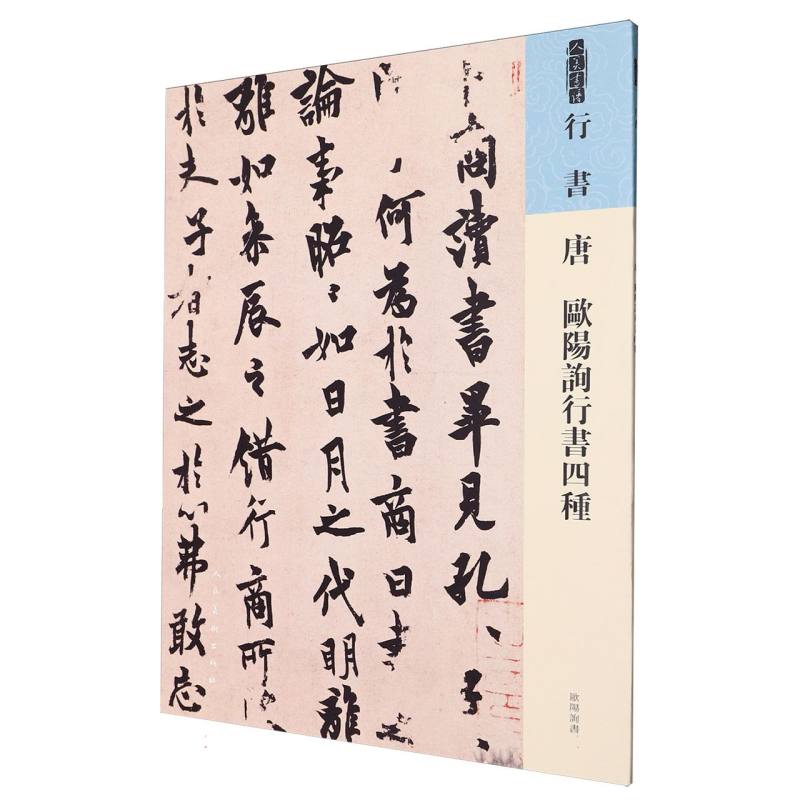 人美書譜
行書
唐 歐陽詢行書四種
歐陽詢書
商閱讀書畢見孔〻子〻
問〻何為於書商曰書之
論事昭〻如日月之代明離
離如參辰之錯行商所〻
於夫子者志之於心弗敢忘
人民美術出版社